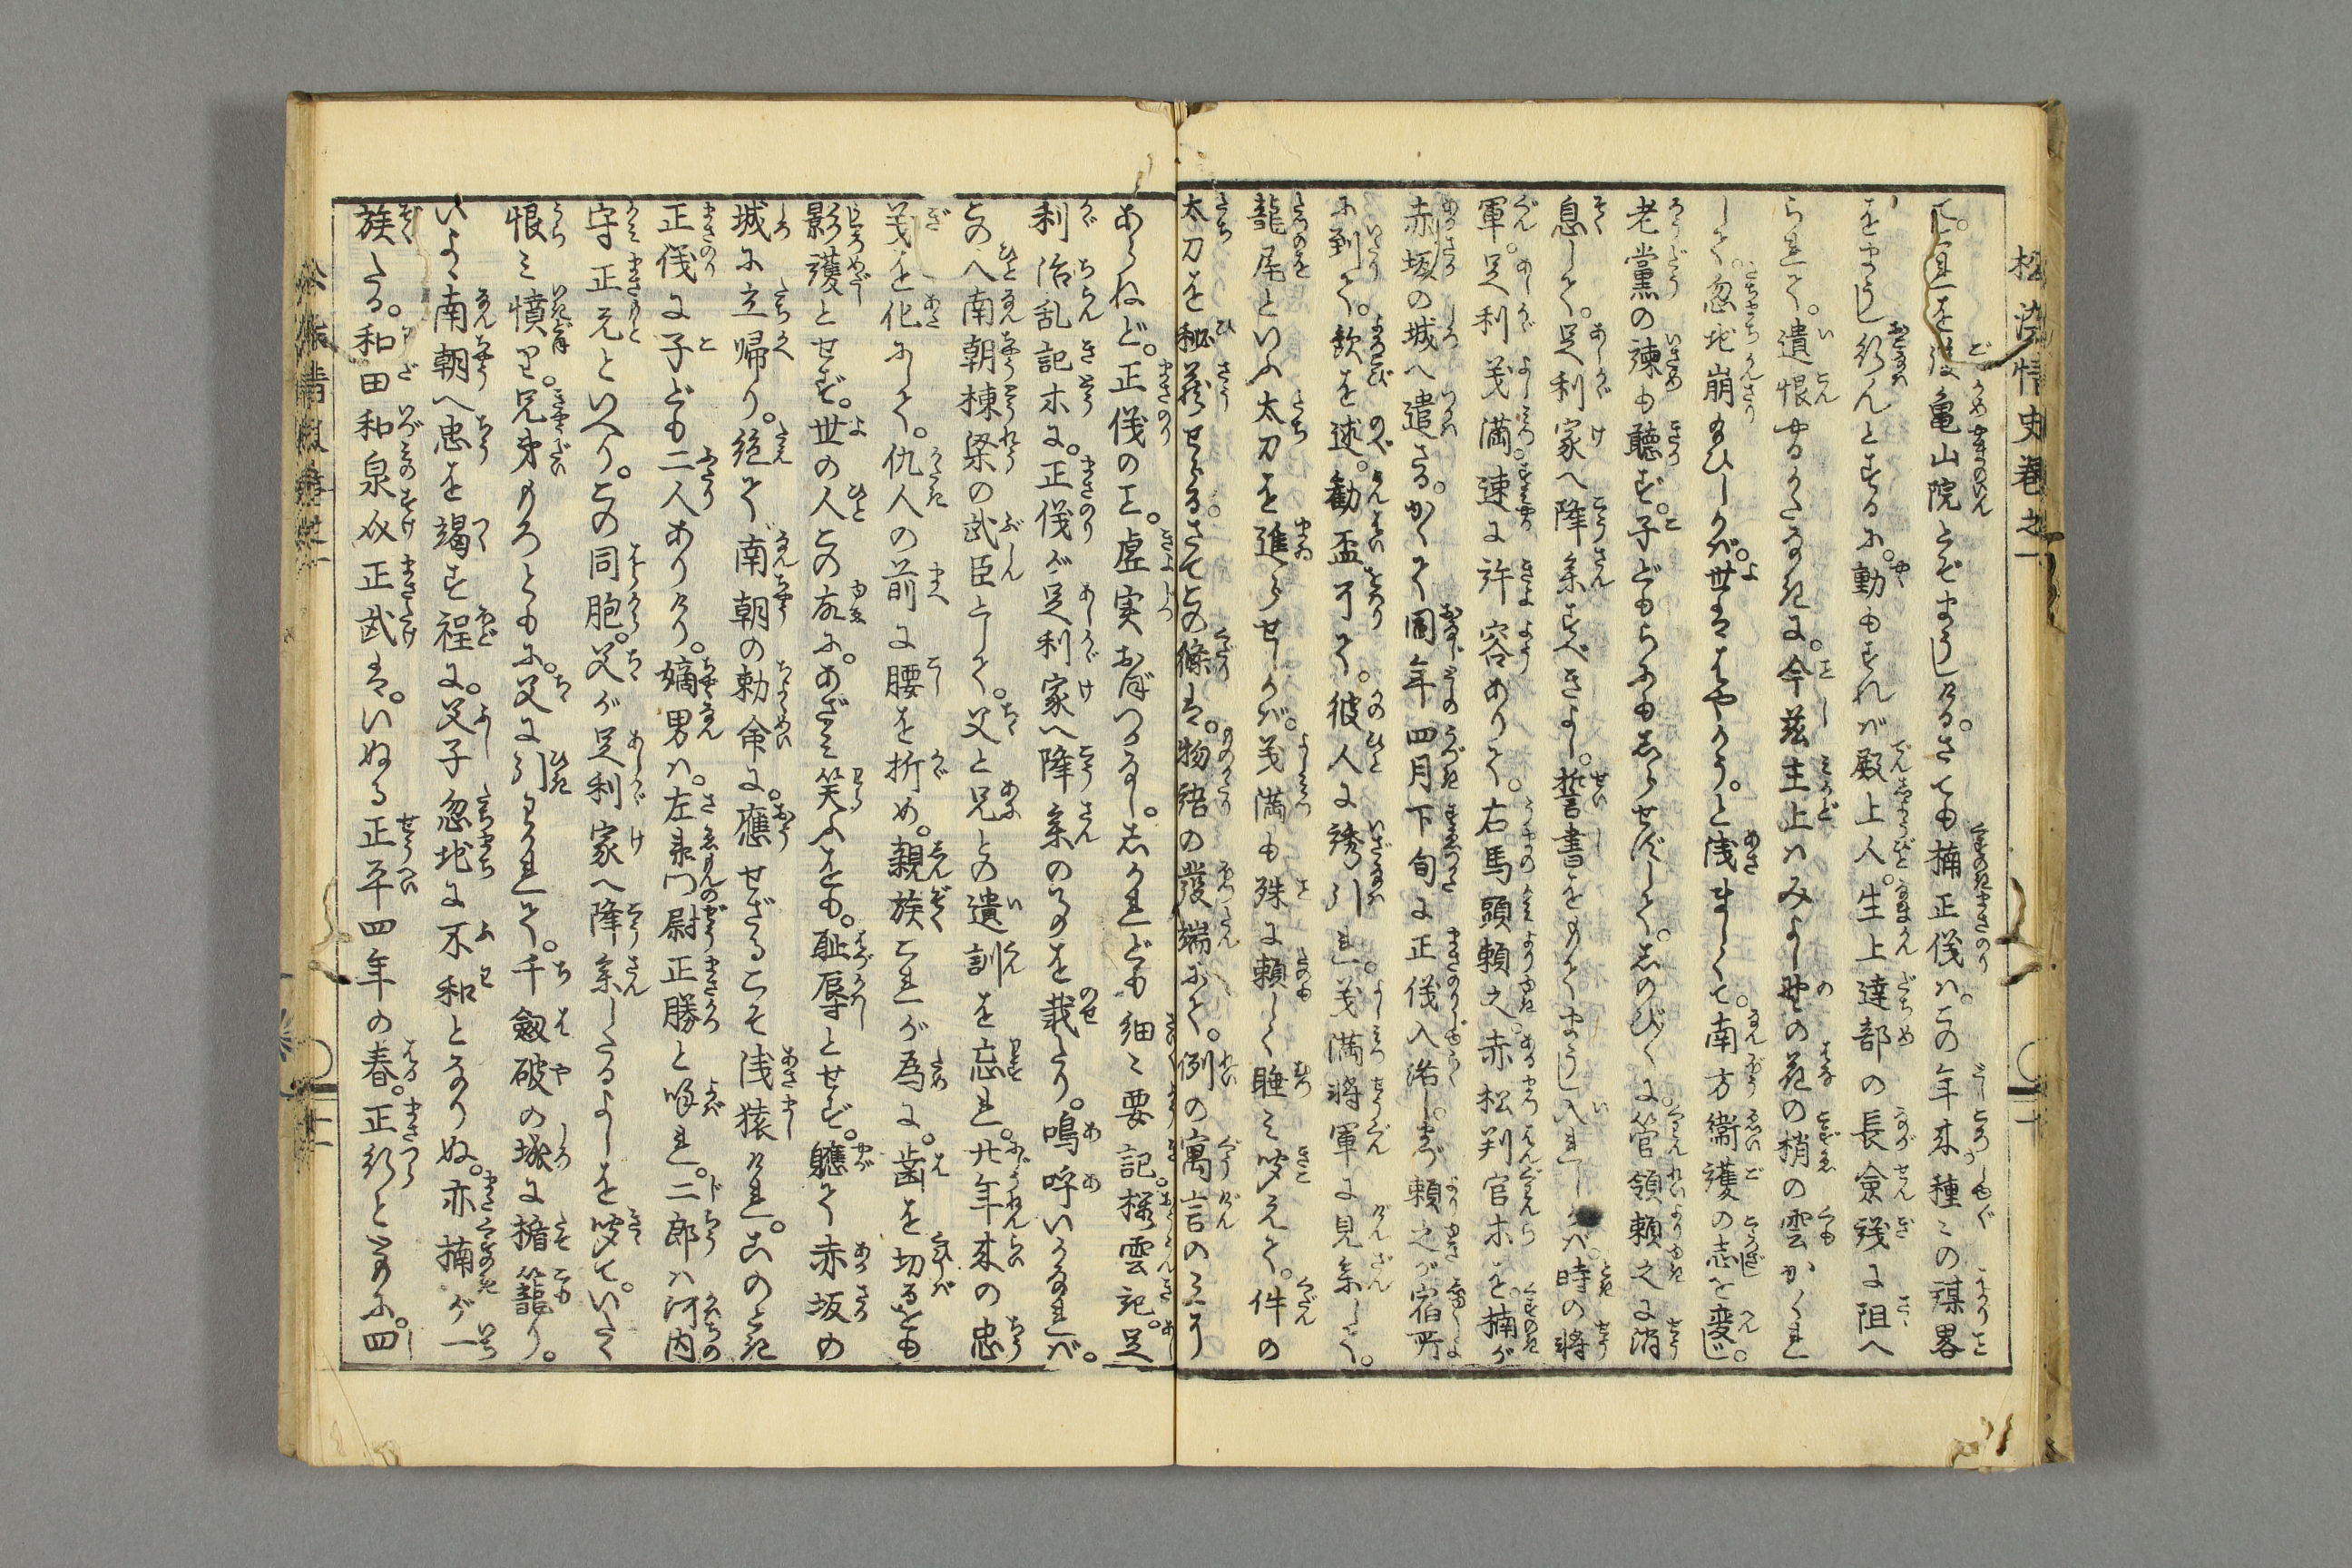 松染情史巻之一
て。是を後亀山院とぞまうしける。さても楠正儀は。この年来種々の謀畧
をまうし行んとするに。動もすれば殿上人。生上達部の長僉議に阻へ
られて。遺恨やるかたなきに。今茲主上はみよし野の花の梢の雲がくれ
して。忽地崩給ひしかば。世ははやかう。と浅ましくて。南方衞護の志を変じ。
老黨の諫も聴ず。子どもらにもしらせずして。しのび〳〵に管領頼之に消
息して。足利家へ降参すべきよし。誓書をもてまうし入れしかば。時の将
軍。足利義満。速に許容ありて。右馬頭頼之。赤松判官等を。楠が
赤坂の城へ遣さる。かくて同年四月下旬に正儀入洛し。まづ頼之が宿所
に到て。歓を述。勸盃了て。彼人に誘引れ。義満将軍に見参して。
龍尾といふ太刀を進らせしかば。義満も殊に頼しく睦み聞えて。件の
太刀を秘藏せらる。さてこの條は。物語の發端にて。例の寓言のみに
あらねど。正儀の事。虚実おぼつかなし。しかれども細々要記。櫻雲記。足
利治乱記等に。正儀が足利家へ降参のよしを載たり。嗚呼いかなれば。
この人南朝棟梁の武臣として。父と兄との遺訓を忘れ。廿年来の忠
義を化にして。仇人の前に腰を折め。親族これが為に。歯を切るをも
影護とせず。世の人この故に。あざみ笑ふをも。耻辱とせず。軈て赤坂の
城に立帰り。絶て南朝の勅命に。應せざるこそ浅猿けれ。このとき
正儀に子ども二人ありけり。嫡男は。左衛門尉正勝と喚れ。二郎は河内
守正元といへり。この同胞。父が足利家へ降参したるよしを聞て。いたく
恨み憤り。兄弟もろともに。父に引わかれて。千劔破の城に楯籠り。
いよ〳〵南朝へ忠を竭す程に。父子忽地に不和となりぬ。亦楠が一
族たる。和田和泉介正武は。いぬる正平四年の春。正行とゝもに。四